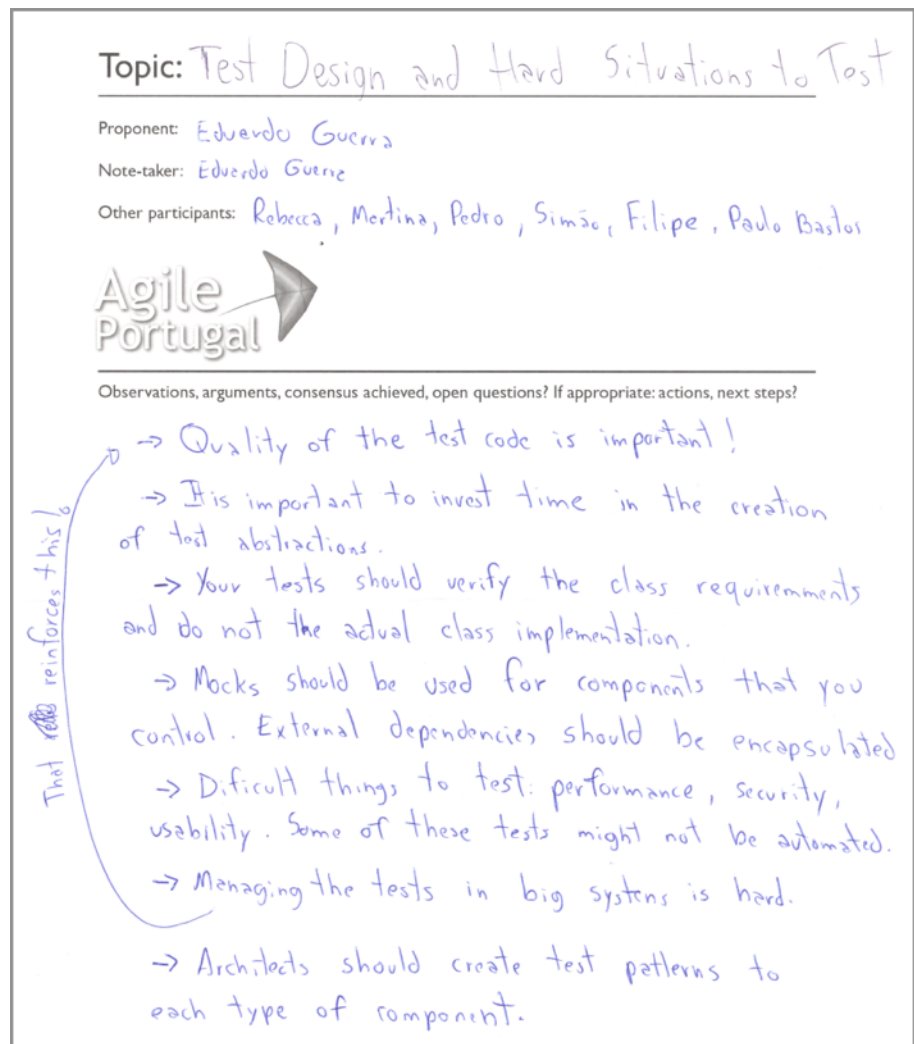 Topic: Test Design and Hard Situations to Test
Proponent: Eduardo Guerra
Note-taker: Eduardo Guerra
Other participants: Rebecca, Martina, Pedro, Simão, Filipe, Paulo Bastos
Agile
Portugal
Observations, arguments, consensus achieved, open questions? If appropriate: actions, next steps?
→ Quality of the test code is important!
→ It is important to invest time in the creation
of test abstractions.
→ Your tests should verify the class requiremments
and do not the actual class implementation.
→ Mocks should be used for components that you
control. External dependencies should be encapsulated
→ Dificult things to test: performance, security,
usability. Some of these tests might not be automated.
→ Managing the tests in big systens is hard.
→ Architects should create test patterns to
each type of component.
That reinforces this!